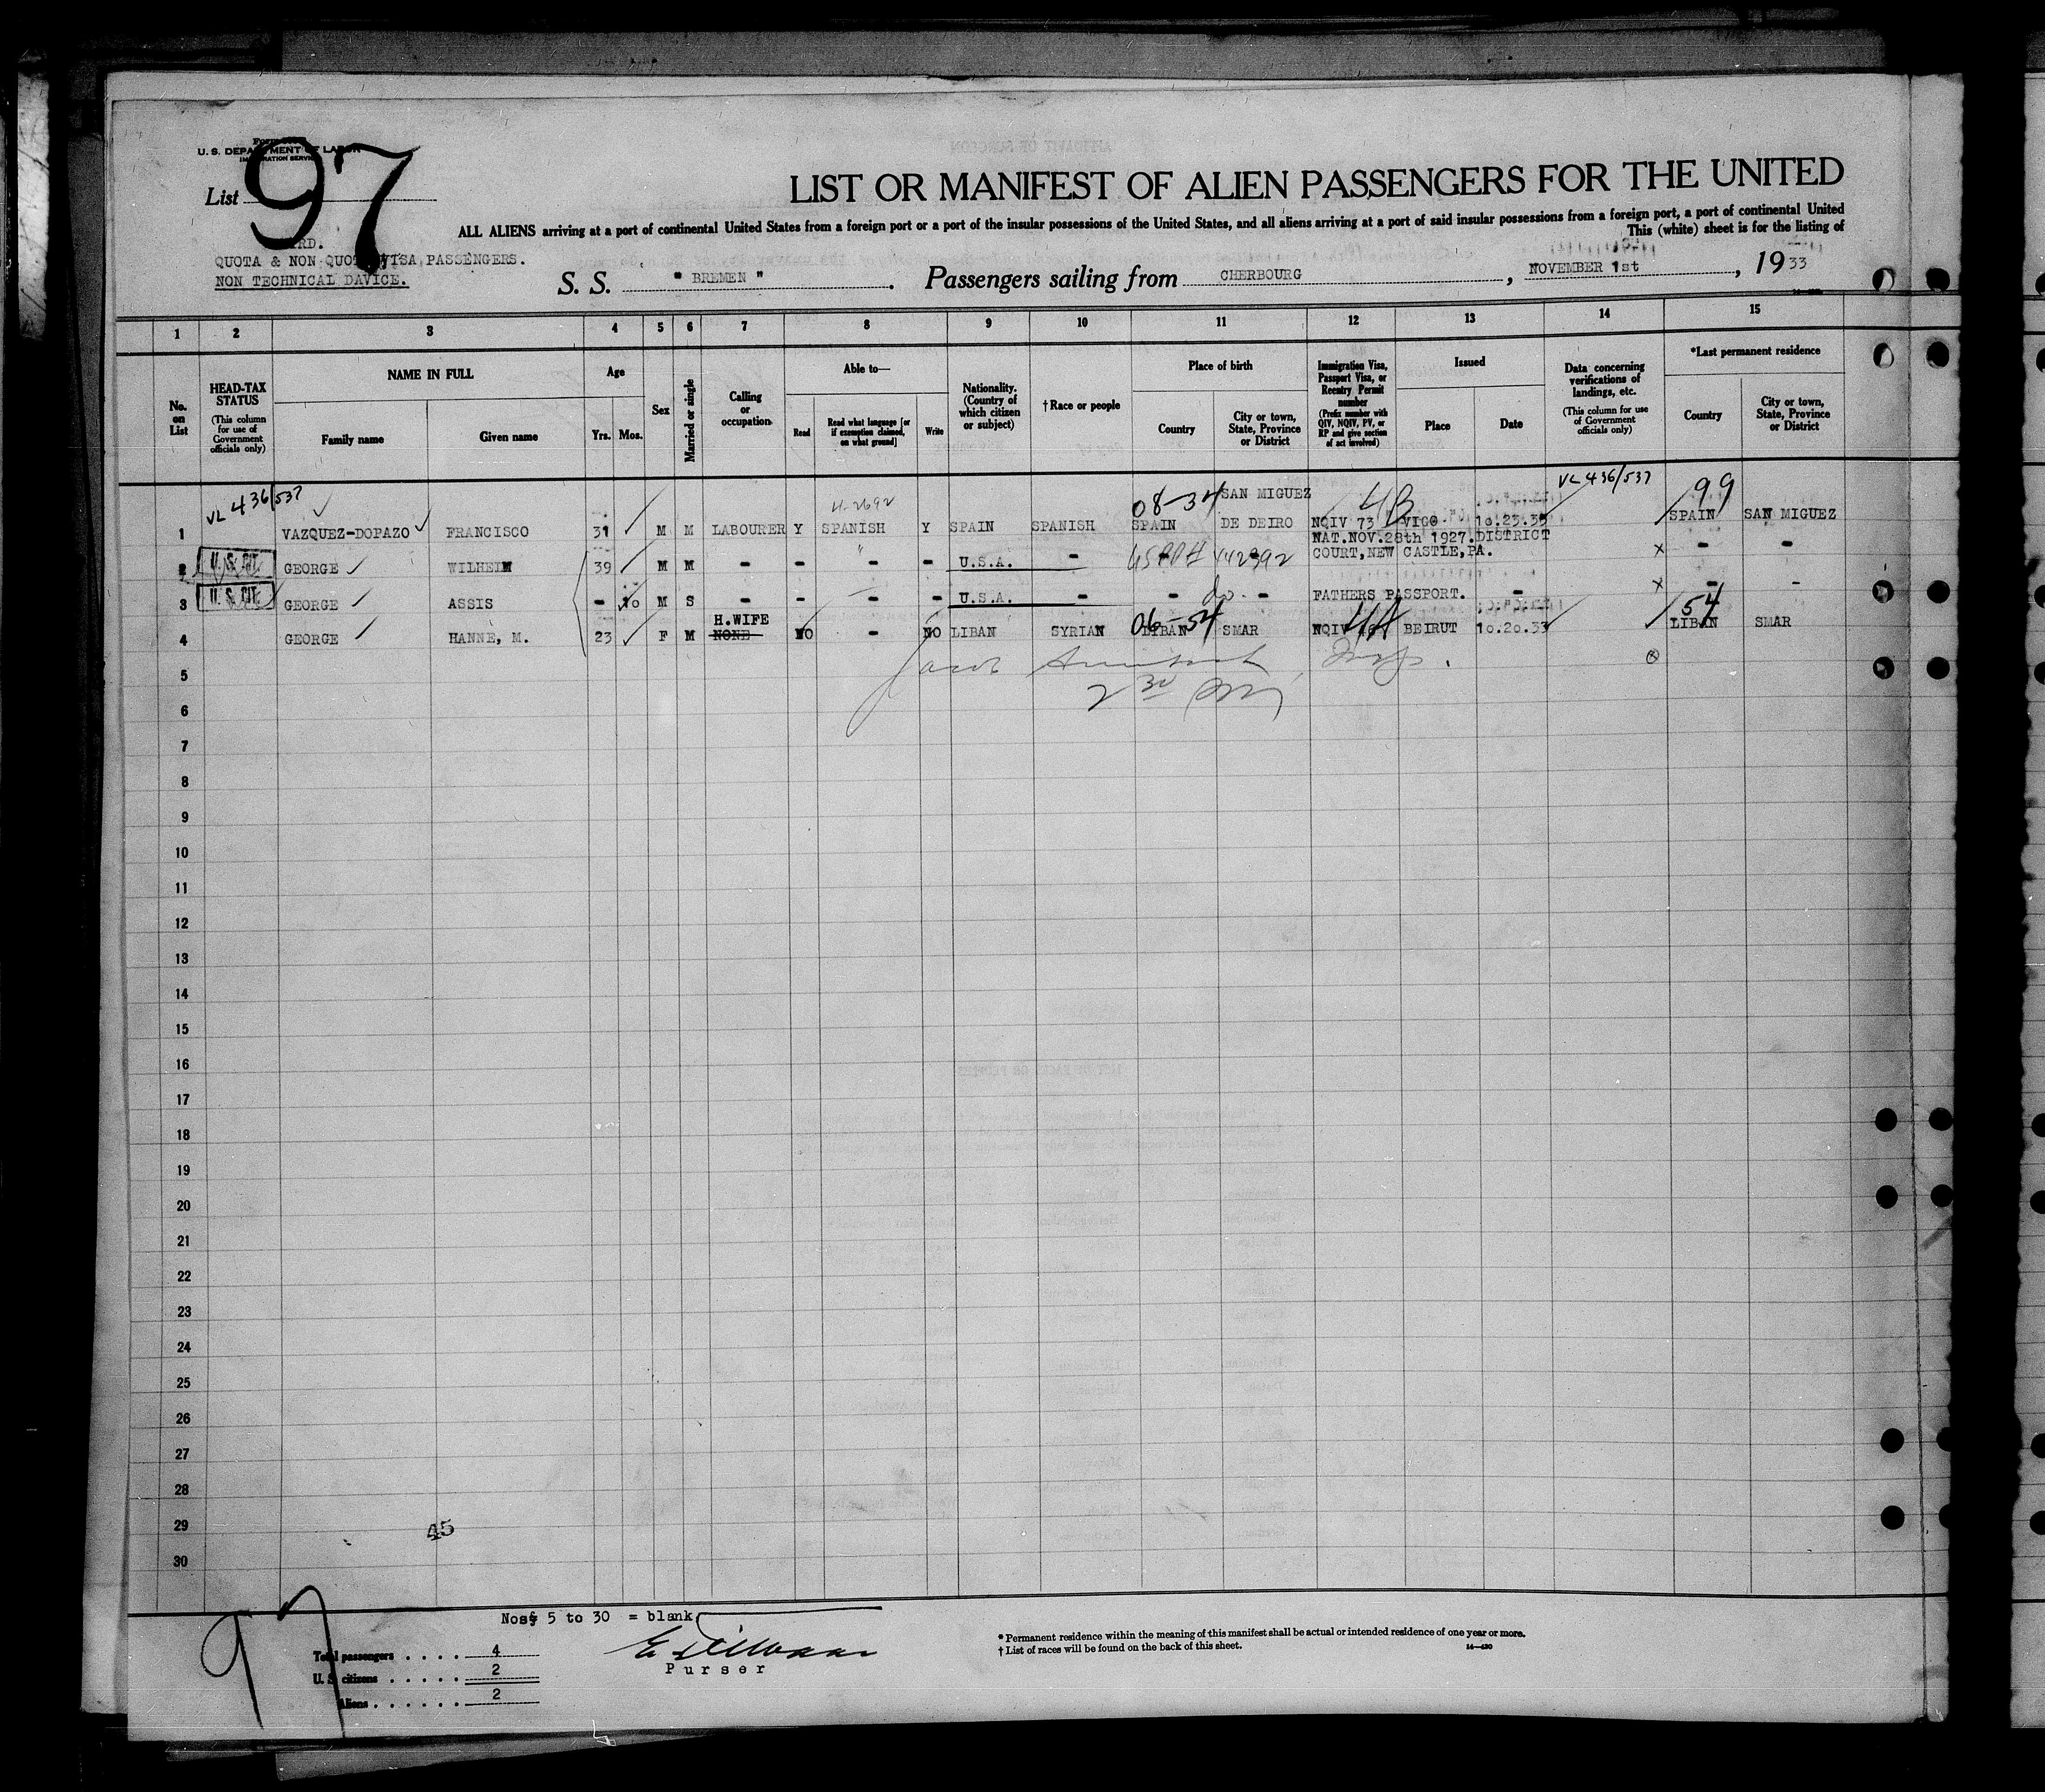 U. S. DEPARTMENT OF LABOR
IMMIGRATION SERVICE
List 97
LIST OR MANIFEST OF ALIEN PASSENGERS FOR THE UNITED
ALL ALIENS arriving at a port of continental United States from a foreign port or a port of the insular possessions of the United States, and all aliens arriving at a port of said insular possessions from a foreign port, a port of continental United
This (white) sheet is for the listing of
RD.
QUOTA & NON QUOTA VISA PASSENGERS.
NON TECHNICAL DAVICE.
S. S. " BREMEN " . Passengers sailing from CHERBOURG , NOVEMBER 1st , 19 33
1 2 3 4 5 6 7 8 9 10 11 12 13 14 15
No. on List
HEAD-TAX STATUS
(This column for use of Government officials only)
NAME IN FULL
Family name
Given name
Age
Yrs.
Mos.
Sex
Married or single
Calling or occupation
Able to—
Read
Read what language [or if exemption claimed, on what ground]
Write
Nationality. (Country of which citizen or subject)
† Race or people
Place of birth
Country
City or town, State, Province or District
Immigration Visa, Passport Visa, or Reentry Permit number
(Prefix number with QIV, NQIV, PV, or RP and give section of act involved)
Issued
Place
Date
Data concerning verifications of landings, etc.
(This column for use of Government officials only)
*Last permanent residence
Country
City or town, State, Province or District
VL 436/537
4-2692
08-34
SAN MIGUEZ
4B
VL 436/537
99
1 VAZQUEZ-DOPAZO FRANCISCO 31 M M LABOURER Y SPANISH Y SPAIN SPANISH SPAIN DE DEIRO NQIV 73 VIGO 10.23.33 SPAIN SAN MIGUEZ
NAT.NOV.28th 1927.DISTRICT
2 U. S. CIT. GEORGE WILHEIM 39 M M - - " - U.S.A. - USPPH 442392 COURT,NEW CASTLE,PA. x - -
3 U. S. CIT. GEORGE ASSIS - 10 M S - - - - U.S.A. - - do - FATHERS PASSPORT. - x - -
H.WIFE
06-54
4A
54
4 GEORGE HANNE, M. 23 F M NONE NO - NO LIBAN SYRIAN LIBAN SMAR NQIV BEIRUT 10.20.33 LIBAN SMAR
Jacob Insp.
5
6
7
8
9
10
11
12
13
14
15
16
17
18
19
20
21
22
23
24
25
26
27
28
29
45
30
97
Nos 5 to 30 = blank
Total passengers . . . . . 4
U. S. citizens . . . . . . 2
Aliens . . . . . . 2
Purser
* Permanent residence within the meaning of this manifest shall be actual or intended residence of one year or more.
† List of races will be found on the back of this sheet.
14—430